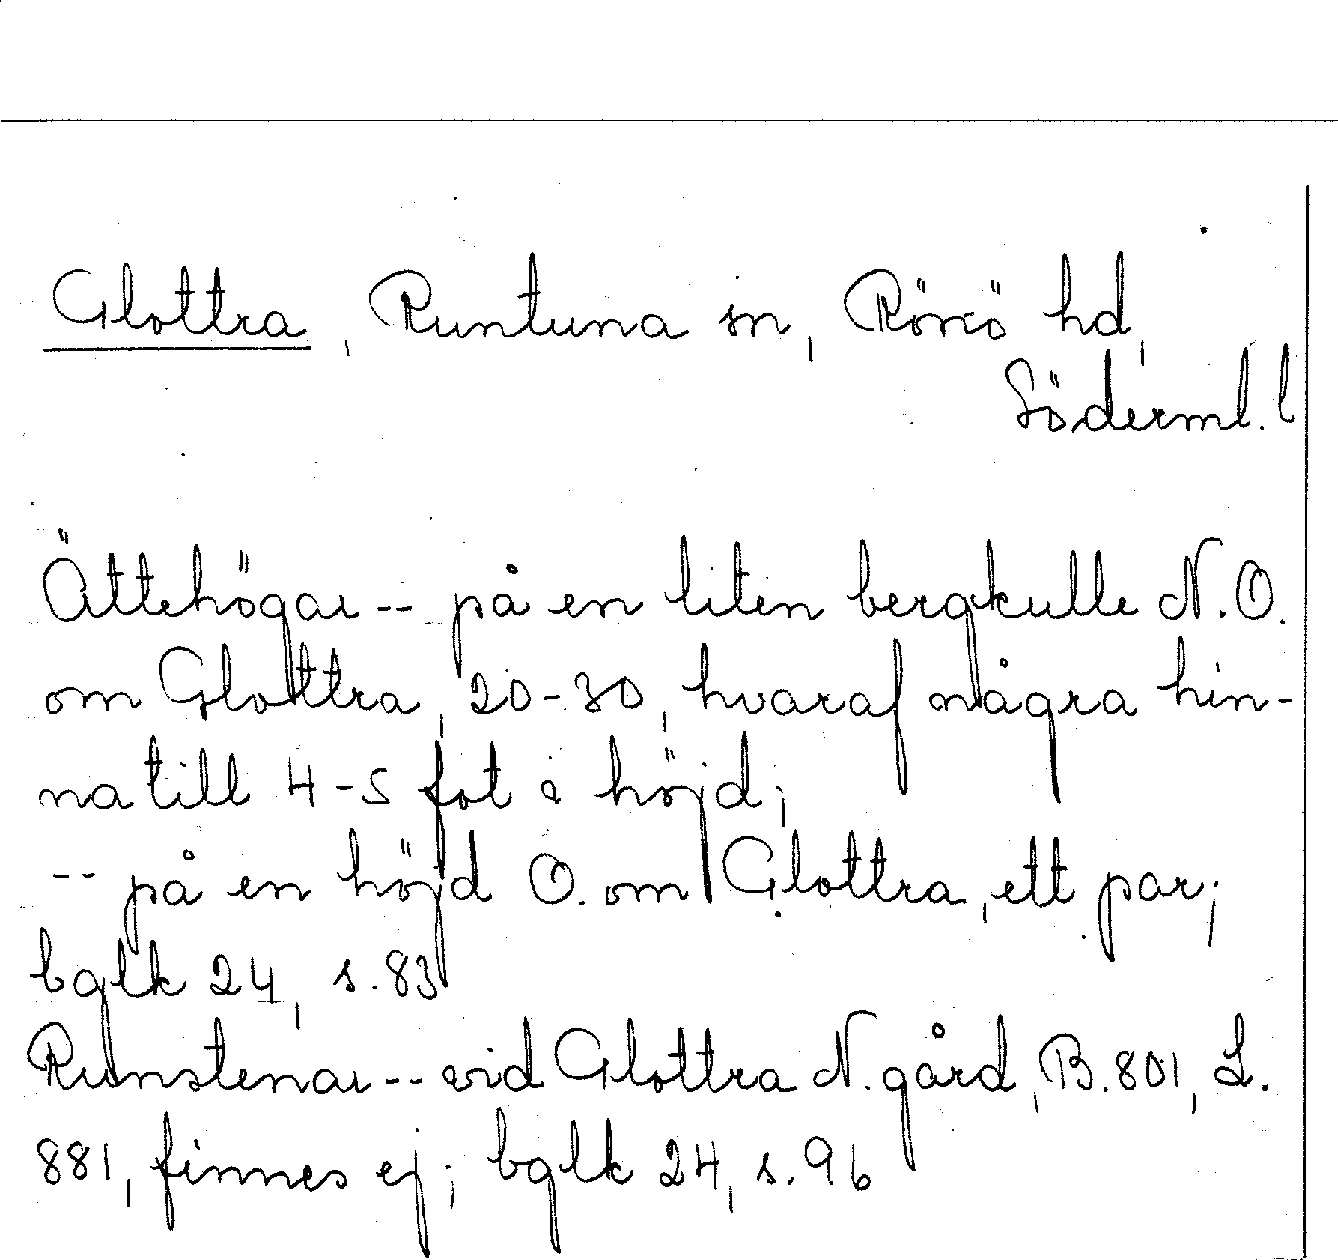 Glottra, Runtuna sn, Rönö hd,
Söderml. l
Ättehögar -- på en liten bergkulle N.O.
om Glottra, 20-30, hvaraf några hin-
na till 4-5 fot i höjd;
-- på en höjd O. om Glottra, ett par;
bglk 24, s. 83
Runstenar -- vid Glottra N. gård, B. 801, L.
881, finnes ej; bglk 24, s. 96